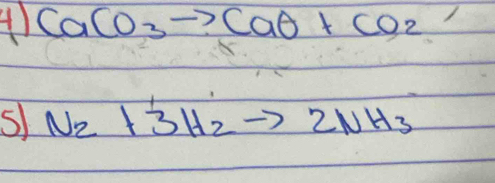 4) CaCO3 → CaO + CO2
5) N2 + 3H2 → 2NH3